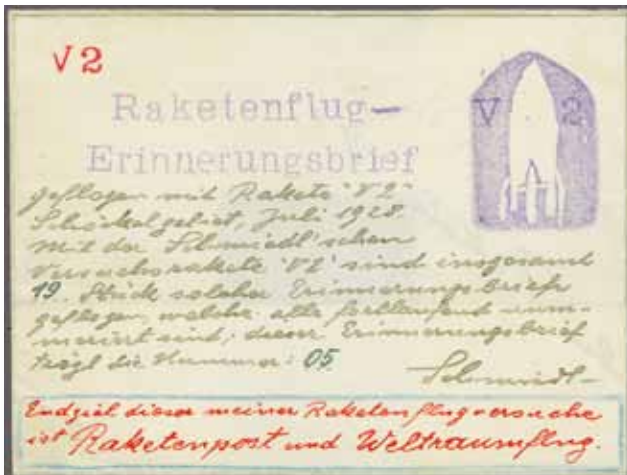 V2
Raketenflug-
Erinnerungsbrief
V 2
geflogen mit Rakete "V2"
Schöckelgebiet, Juli 1928.
Mit der Schmiedl'schen
Versuchsrakete "V2" sind insgesamt
19. Stück solcher Erinnerungsbriefe
geflogen, welche alle fortlaufend num-
meriert sind; dieser Erinnerungsbrief
trägt die Nummer: 05
Schmiedl
Endziel dieser meiner Raketenflugversuche
ist Raketenpost und Weltraumflug.